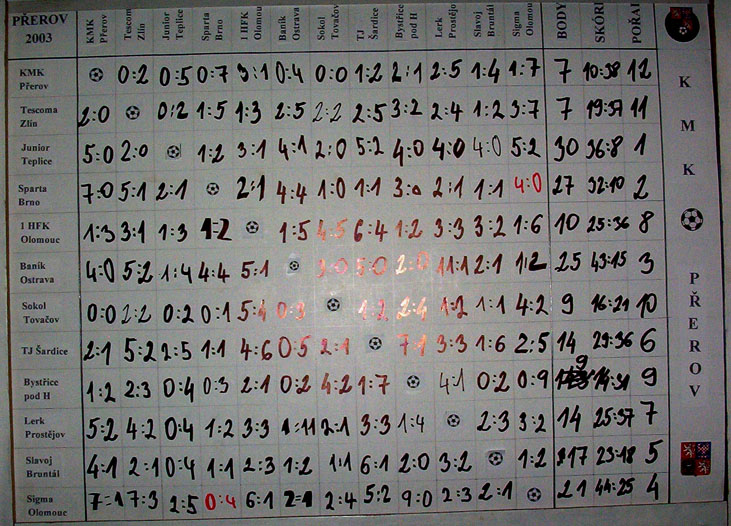 PŘEROV 2003 KMK Přerov Tescom Zlín Junior Teplice Sparta Brno 1 HFK Olomou Baník Ostrava Sokol Tovačov TJ Šardice Bystřice pod H Lerk Prostějo Slavoj Bruntál Sigma Olomou BODY SKÓRE POŘAD
KMK Přerov 0:2 0:5 0:7 3:1 0:4 0:0 1:2 2:1 2:5 1:4 1:7 7 10:38 12
Tescoma Zlín 2:0 0:2 1:5 1:3 2:5 2:2 2:5 3:2 2:4 1:2 3:7 7 19:37 11
Junior Teplice 5:0 2:0 1:2 3:1 4:1 2:0 5:2 4:0 4:0 4:0 5:2 30 36:8 1
Sparta Brno 7:0 5:1 2:1 2:1 4:4 1:0 1:1 3:0 2:1 1:1 4:0 27 32:10 2
1 HFK Olomouc 1:3 3:1 1:3 1:2 1:5 4:5 6:4 1:2 3:3 3:2 1:6 10 25:36 8
Baník Ostrava 4:0 5:2 1:4 4:4 5:1 3:0 5:0 2:0 11:1 2:1 1:2 25 43:15 3
Sokol Tovačov 0:0 2:2 0:2 0:1 5:4 0:3 1:2 2:4 1:2 1:1 4:2 9 16:21 10
TJ Šardice 2:1 5:2 2:5 1:1 4:6 0:5 2:1 7:1 3:3 1:6 2:5 14 29:36 6
Bystřice pod H 1:2 2:3 0:4 0:3 2:1 0:2 4:2 1:7 4:1 0:2 0:9 9 14:31 9
Lerk Prostějov 5:2 4:2 0:4 1:2 3:3 1:11 2:1 3:3 1:4 2:3 3:2 14 25:37 7
Slavoj Bruntál 4:1 2:1 0:4 1:1 2:3 1:2 1:1 6:1 2:0 3:2 1:2 17 23:18 5
Sigma Olomouc 7:1 7:3 2:5 0:4 6:1 2:1 2:4 5:2 9:0 2:3 2:1 21 44:25 4
K M K PŘEROV